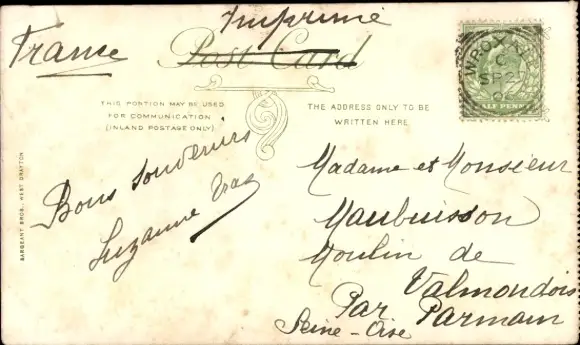 Imprimé
France
Post Card
THIS PORTION MAY BE USED
FOR COMMUNICATION
(INLAND POSTAGE ONLY)
THE ADDRESS ONLY TO BE
WRITTEN HERE
WROXALL
C
SP 27
HALF PENNY
SARGEANT BROS., WEST DRAYTON
Bons souvenirs
Suzanne
Madame et Monsieur
Maubuisson
Moulin de
Valmondois
Par Parmain
Seine-Oise